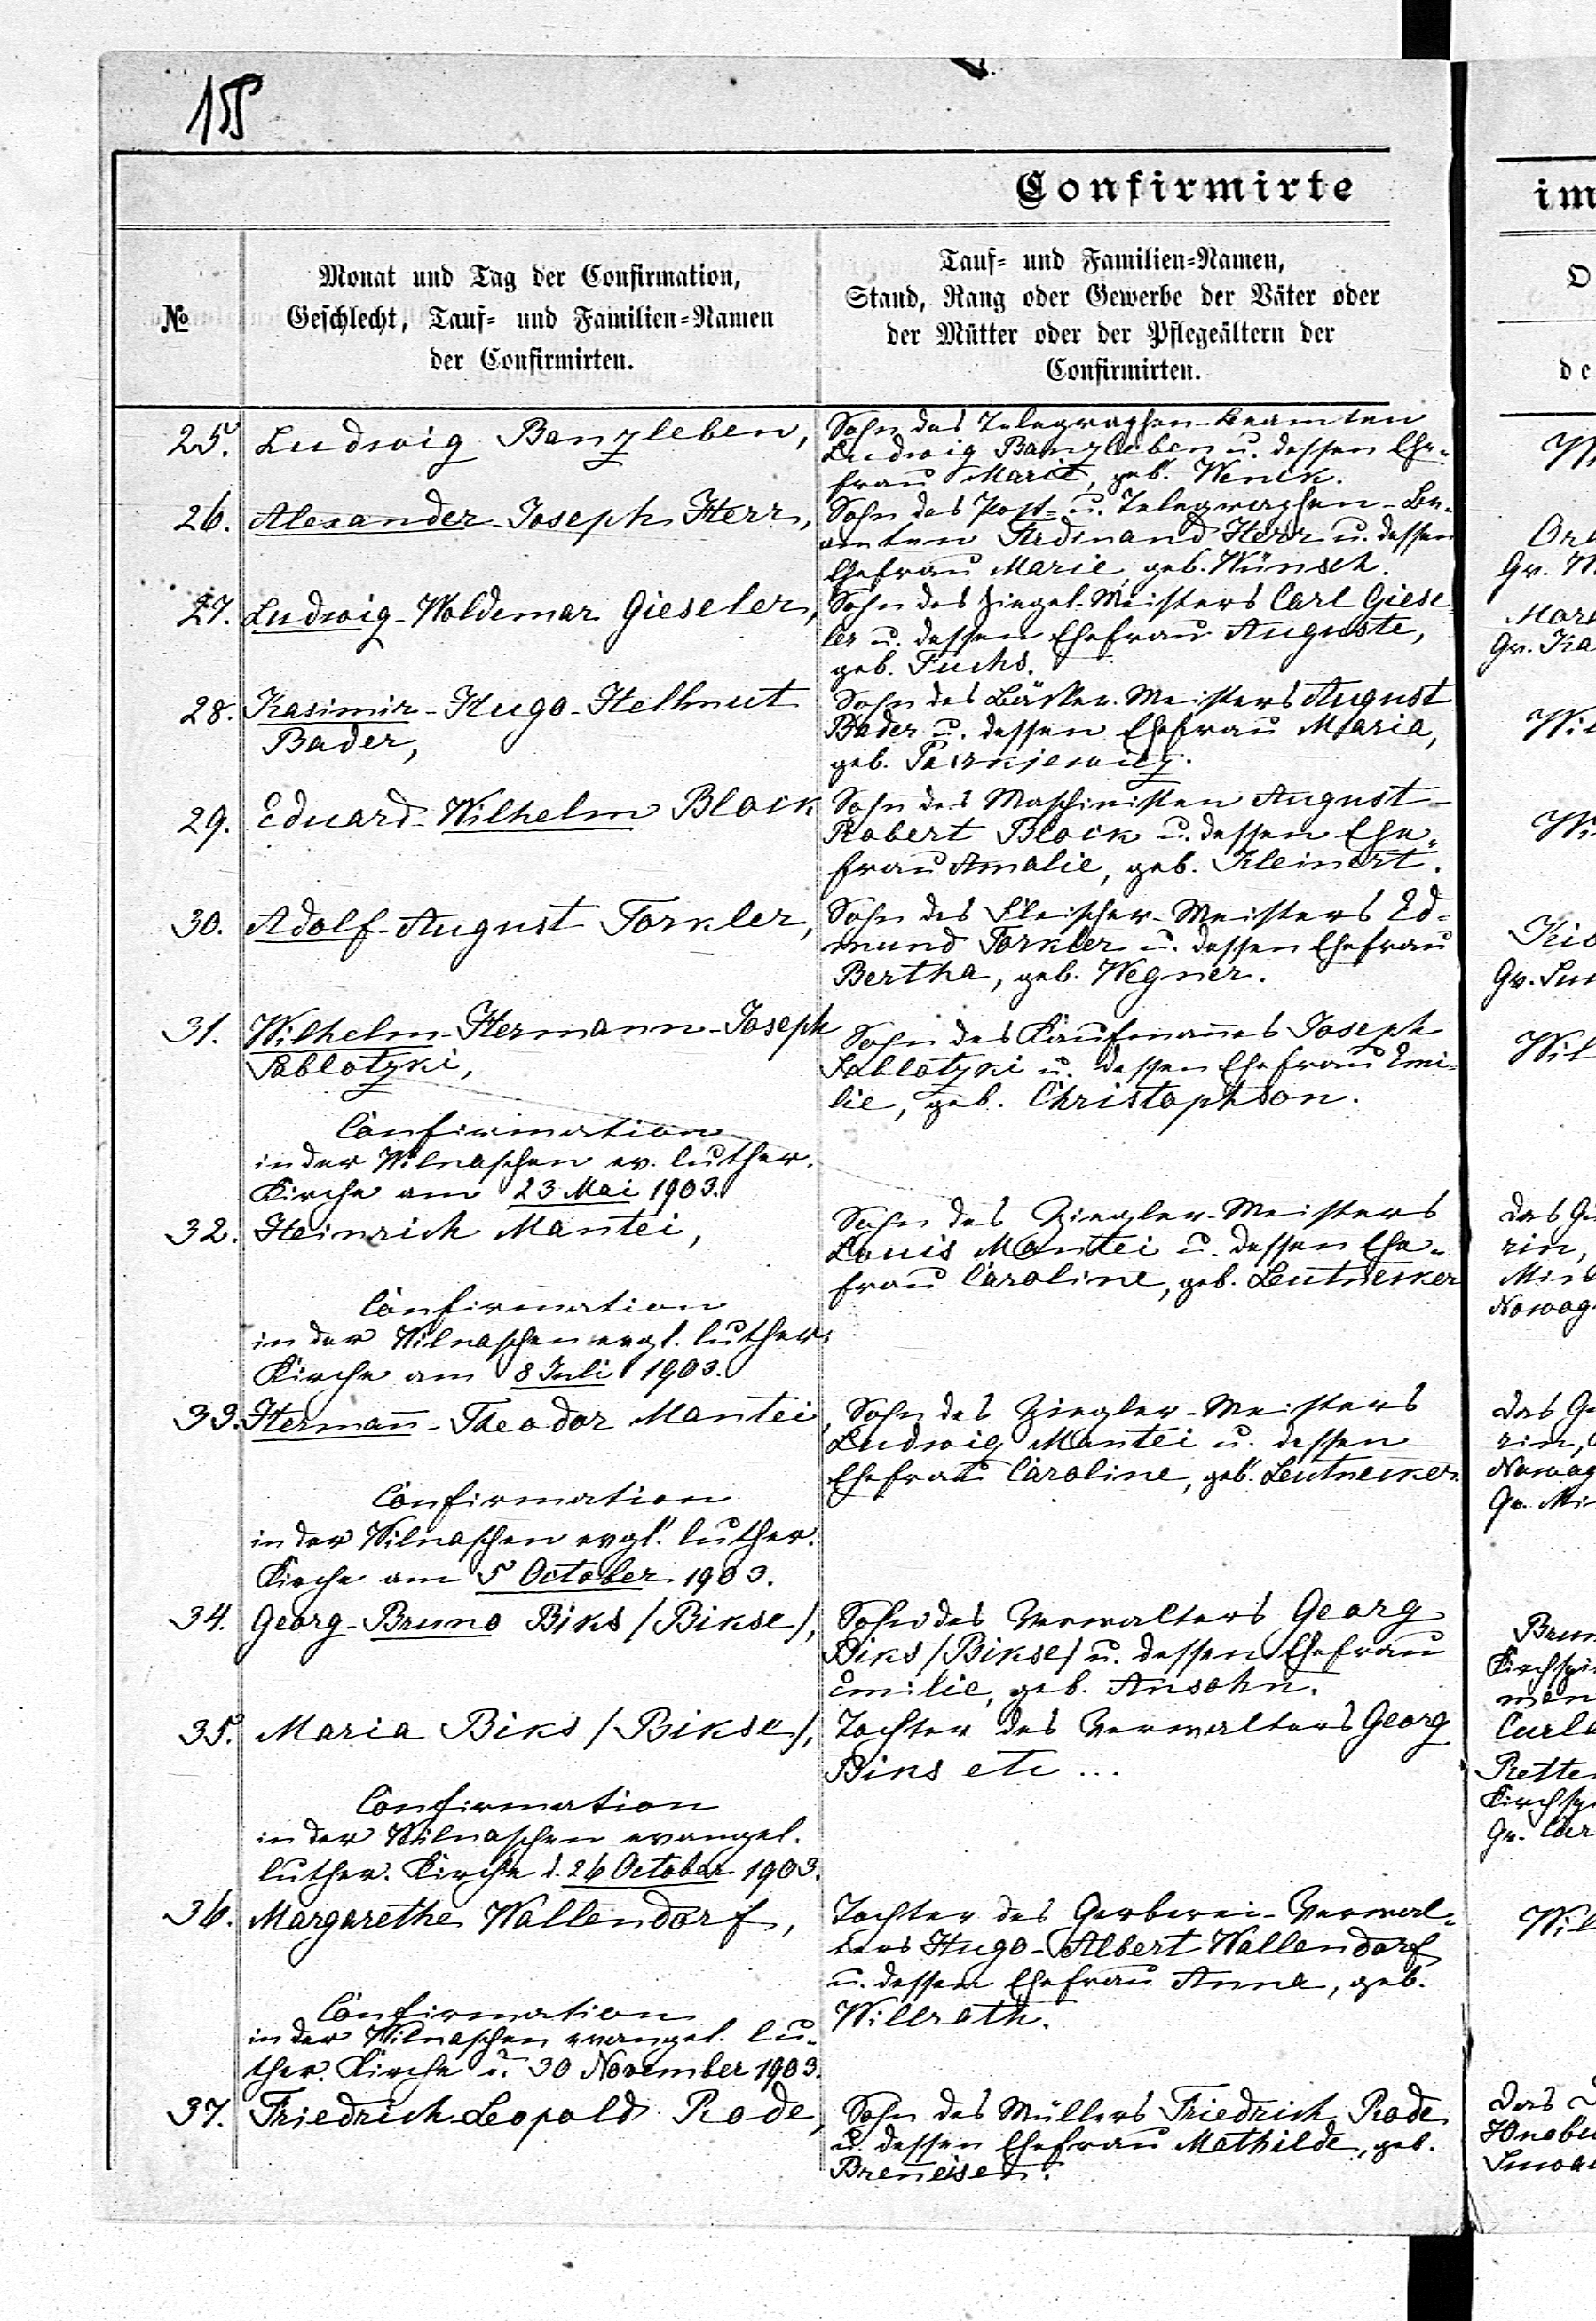 155
Confirmirte
im
№
Monat und Tag der Confirmation,
Geschlecht, Tauf- und Familien-Namen
der Confirmirten.
Tauf- und Familien-Namen,
Stand, Rang oder Gewerbe der Väter oder
der Mütter oder der Pflegeältern der
Confirmirten.
25. Ludwig Banzleben,
Sohn des Telegraphen-Beamten
Ludwig Banzleben u. dessen Ehe-
frau Marie, geb. Wenck.
26. Alexander-Joseph Herr,
Sohn des Post- u. Telegraphen-Be-
amten Ferdinand Herr u. dessen
Ehefrau Marie geb. Wünsch.
27. Ludwig-Woldemar Gieseler,
Sohn des Ziegel-Meisters Carl Giese-
ler u. dessen Ehefrau Auguste,
geb. Fuchs.
28. Kasimir-Hugo-Hellmut
Bader,
Sohn des Bäcker-Meisters August
Bader u. dessen Ehefrau Maria,
geb.
29. Eduard-Wilhelm Block
Sohn des Maschinisten August-
Robert Block u. dessen Ehe-
frau Amalie, geb. Kleinert.
30. Adolf-August Torkler,
Sohn des Fleischer-Meisters Ed-
mund Torkler u. dessen Ehefrau
Bertha, geb. Wegner.
31. Wilhelm-Hermann-Joseph
Sablotzki,
Sohn des Kaufmanns Joseph
Sablotzki u. dessen Ehefrau Emi-
lie, geb. Christophson.
Confirmation
in der Wilnaschen ev. luther.
Kirche am 23 Mai 1903.
32. Heinrich Mantei,
Sohn des Ziegler-Meisters
Louis Mantei u. dessen Ehe-
frau Caroline, geb. Leutnecker
Confirmation
in der Wilnaschen evgl. luther.
Kirche am 8 Juli 1903.
33. Hermann-Theodor Mantei,
Sohn des Ziegler-Meisters
Ludwig Mantei u. dessen
Ehefrau Caroline, geb. Leutnecker.
Confirmation
in der Wilnaschen evgl. luther.
Kirche am 5 October 1903.
34. Georg-Bruno Biks /Bikse/,
Sohn des Verwalters Georg
Biks /Bikse/ u. dessen Ehefrau
Emilie, geb. Ansohn.
35. Maria Biks /Bikse/,
Tochter des Verwalters Georg
Biks etc ...
Confirmation
in der Wilnaschen evangel.
luther. Kirche d. 26 October 1903.
36. Margarethe Wallendorf,
Tochter des Gerberei-Verwal-
ters Hugo-Albert Wallendorf
u. dessen Ehefrau Anna, geb.
Willrath.
Confirmation
in der Wilnaschen evangel. lu-
ther. Kirche d. 30 November 1903.
37. Friedrich-Leopold Rode,
Sohn des Müllers Friedrich Rode
u. dessen Ehefrau Mathilde, geb.
Breneisen.